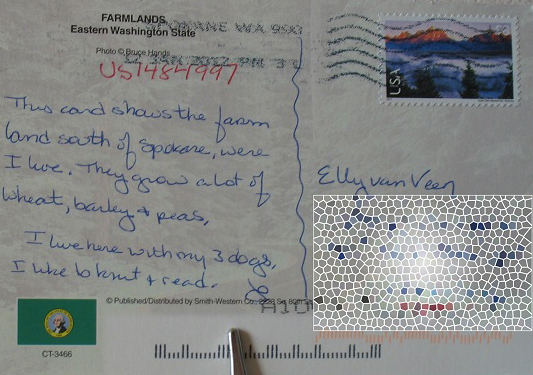 FARMLANDS
Eastern Washington State
Photo © Bruce Hands
SPOKANE WA
US1484997
This card shows the farm
land south of Spokane, were
I live. They grow a lot of
wheat, barley & peas,
I live here with my 3 dogs,
I like to knit & read.
Elly van Veen
USA
© Published/Distributed by Smith-Western Co.
CT-3466